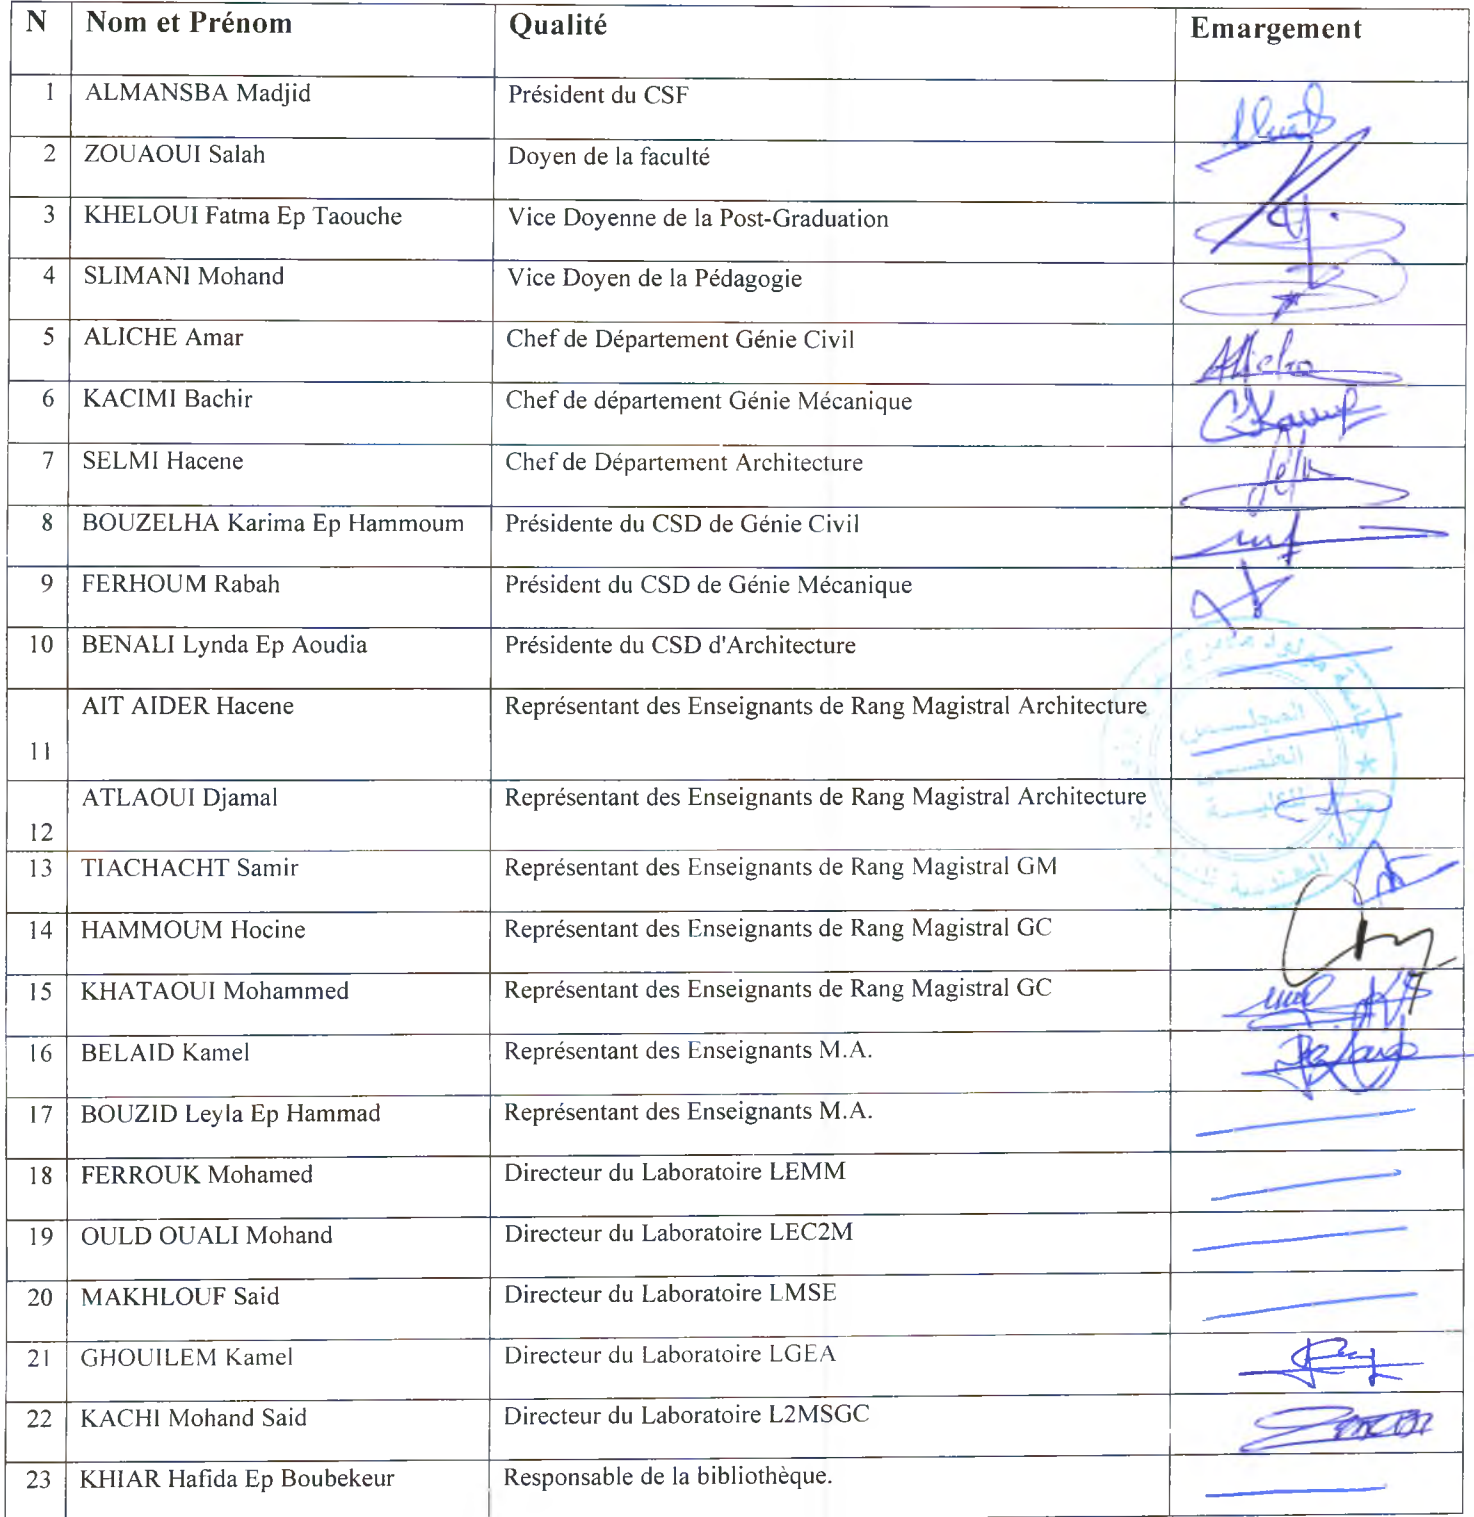 N Nom et Prénom Qualité Emargement
1 ALMANSBA Madjid Président du CSF
2 ZOUAOUI Salah Doyen de la faculté
3 KHELOUI Fatma Ep Taouche Vice Doyenne de la Post-Graduation
4 SLIMANI Mohand Vice Doyen de la Pédagogie
5 ALICHE Amar Chef de Département Génie Civil
6 KACIMI Bachir Chef de département Génie Mécanique
7 SELMI Hacene Chef de Département Architecture
8 BOUZELHA Karima Ep Hammoum Présidente du CSD de Génie Civil
9 FERHOUM Rabah Président du CSD de Génie Mécanique
10 BENALI Lynda Ep Aoudia Présidente du CSD d'Architecture
11 AIT AIDER Hacene Représentant des Enseignants de Rang Magistral Architecture
12 ATLAOUI Djamal Représentant des Enseignants de Rang Magistral Architecture
13 TIACHACHT Samir Représentant des Enseignants de Rang Magistral GM
14 HAMMOUM Hocine Représentant des Enseignants de Rang Magistral GC
15 KHATAOUI Mohammed Représentant des Enseignants de Rang Magistral GC
16 BELAID Kamel Représentant des Enseignants M.A.
17 BOUZID Leyla Ep Hammad Représentant des Enseignants M.A.
18 FERROUK Mohamed Directeur du Laboratoire LEMM
19 OULD OUALI Mohand Directeur du Laboratoire LEC2M
20 MAKHLOUF Said Directeur du Laboratoire LMSE
21 GHOUILEM Kamel Directeur du Laboratoire LGEA
22 KACHI Mohand Said Directeur du Laboratoire L2MSGC
23 KHIAR Hafida Ep Boubekeur Responsable de la bibliothèque.